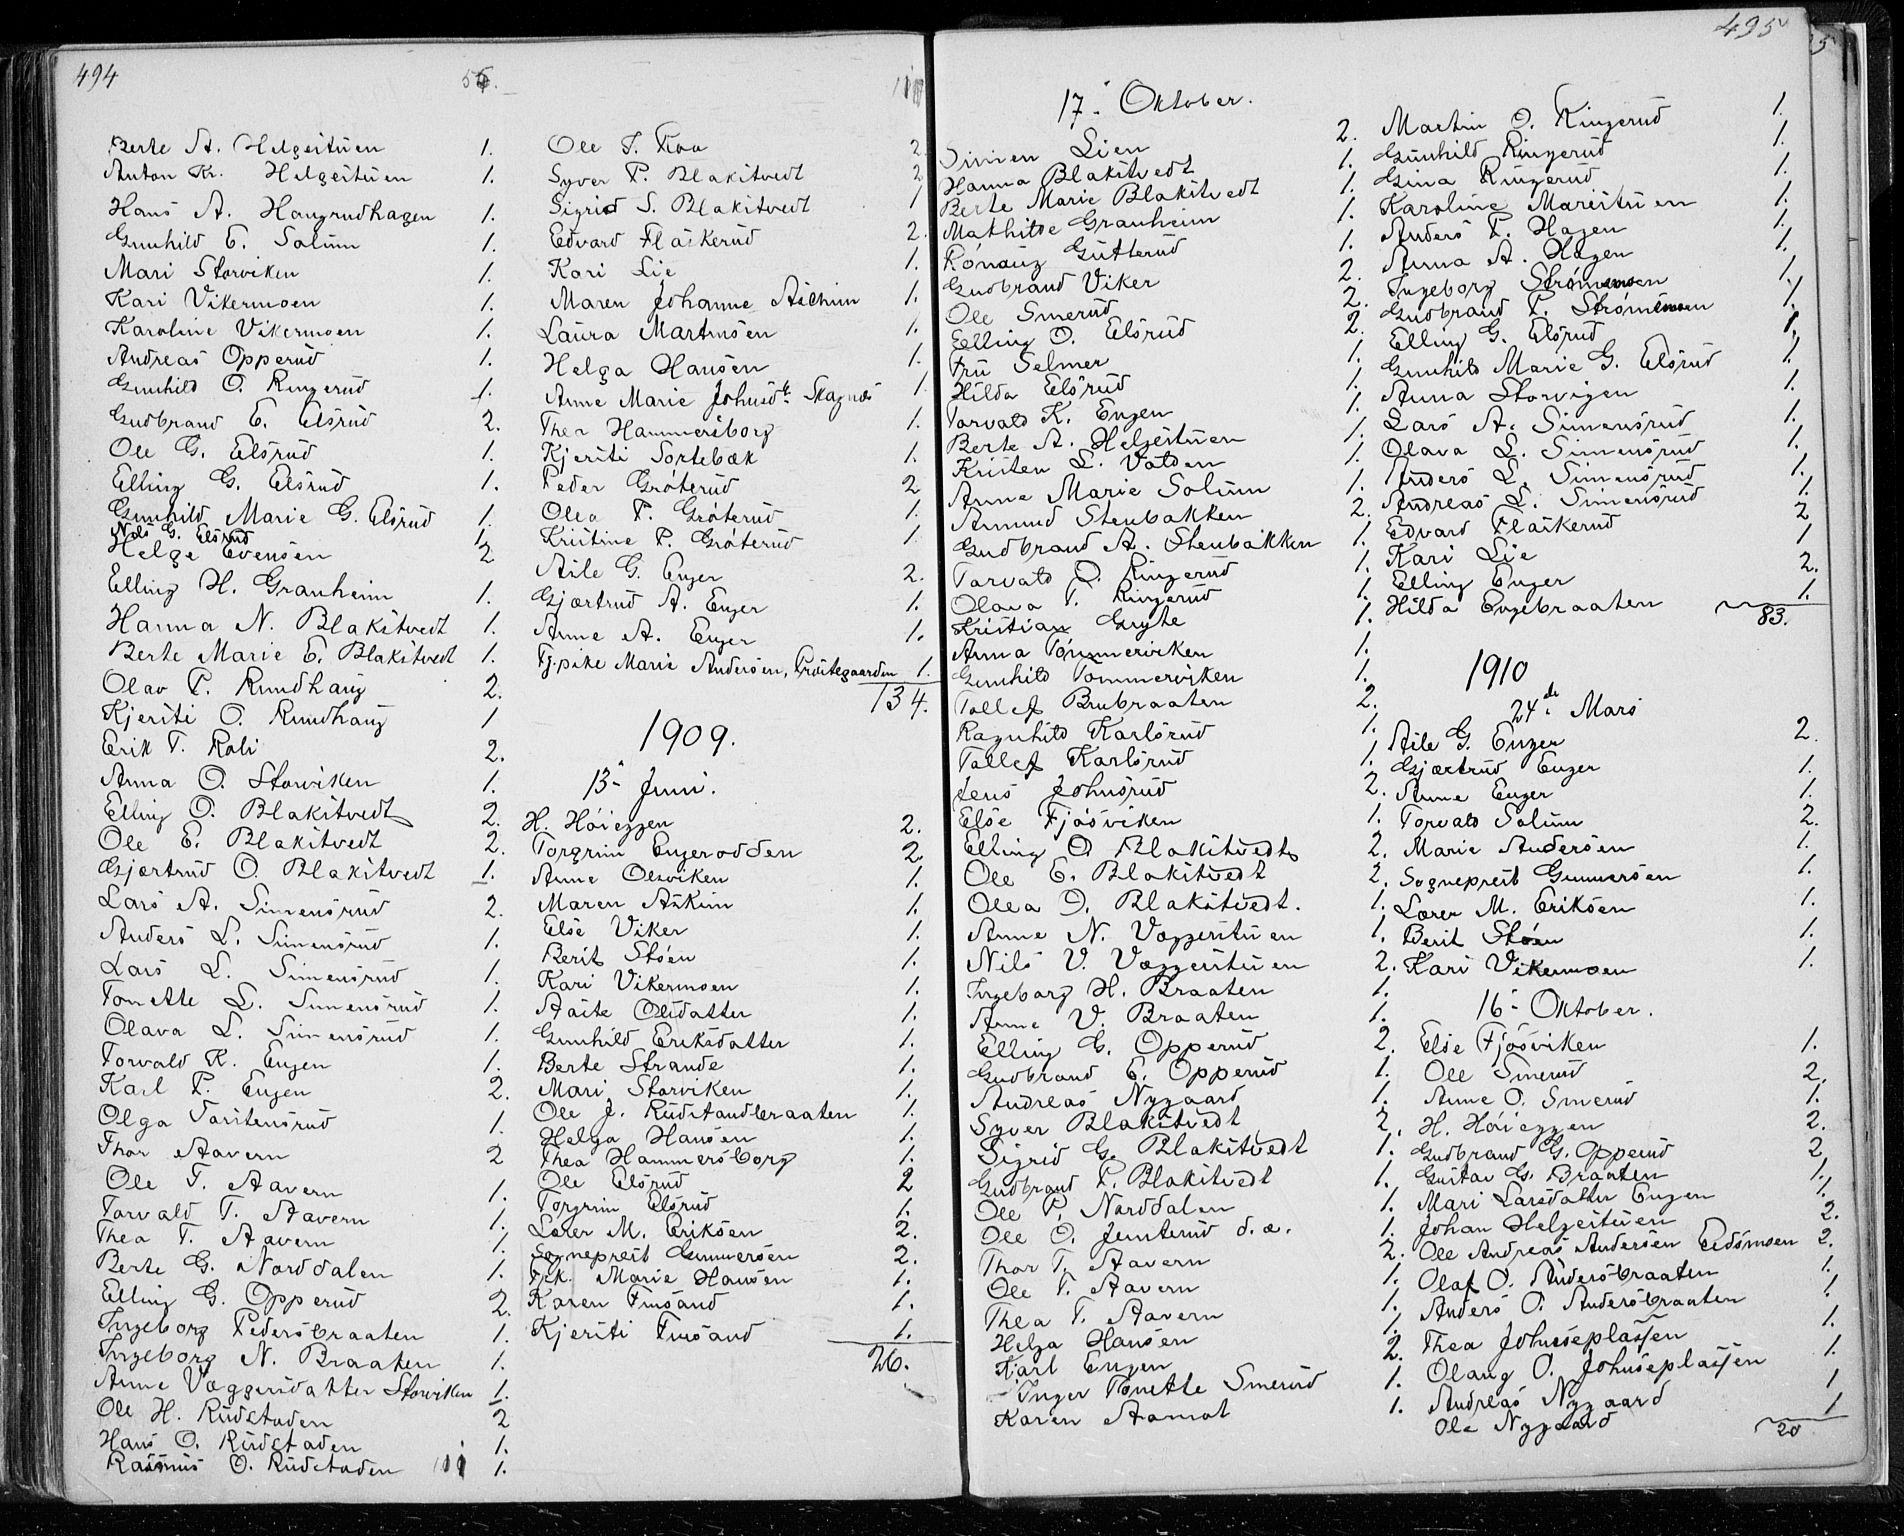 494
Berte A. Helgeituen 1.
Anton Kr. Helgeituen 1.
Hans A. Haugrudhagen 1.
Gunhild E. Solum 1.
Mari Storviken 1.
Kari Vikermoen 1.
Karoline Vikermoen 1.
Andreas Opperud 1.
Gunhild O. Ringerud 1.
Gudbrand E. Elsrud 2.
Ole G. Elsrud 1.
Elling G. Elsrud 1.
Gunhild Marie G. Elsrud 1.
Nils G. Elsrud 1.
Helge Evensen 2
Elling H. Granheim 1.
Hanna N. Blakstvedt 1.
Berte Marie E. Blakstvedt 1.
Olav P. Rundhaug 2.
Kjersti O. Rundhaug 1
Erik T. Roli 2.
Anna O. Storviken 1.
Elling O. Blakstvedt 2.
Ole E. Blakstvedt 2.
Gjærtrud O. Blakstvedt 1.
Lars A. Simensrud 2.
Anders L. Simensrud 1.
Lars L. Simensrud 1.
Tonette L. Simensrud 1.
Olava L. Simensrud 1.
Torvald K. Engen 1.
Karl P. Engen 2.
Olga Torstensrud 1.
Thor Aavern 2
Ole T. Aavern 1.
Torvald T. Aavern 1.
Thea T. Aavern 1.
Berte G. Norddalen 1.
Elling G. Opperud 2.
Ingeborg Pedersbraaten 1.
Ingeborg N. Braaten 1.
Anne Væggersdatter Storviken 1.
Ole H. Rudstaden 2
Hans O. Rudstaden 1.
Rasmus O. Rudstaden 1.
Ole T. Roa 2.
Syver P. Blakstvedt 2
Sigrid S. Blakstvedt 1
Edvard Flaskerud 2.
Kari Lie 1.
Maren Johanne Askim 1.
Laura Martinsen 1.
Helga Hansen 1.
Anne Marie Johnsdt. Skagnæs 1.
Thea Hammersborg 1.
Kjersti Sortebæk 1.
Peder Grøterud 2
Olea P. Grøterud 1.
Kristine P. Grøterud 1
Asle G. Enger 2.
Gjærtrud A. Enger 1.
Anne A. Enger 1.
Tj.pike Marie Andersen, Præstegaarden 1.
134.
1909.
13- Juni.
H. Høieggen 2.
Torgrim Engerodden 2.
Anne Olsviken 1.
Maren Askim 1.
Else Viker 1.
Berit Støen 1.
Kari Vikermoen 1.
Aaste Olsdatter 1.
Gunhild Eriksdatter 1.
Berte Strande 1.
Mari Storviken 1.
Ole J. Rudstandbraaten 1.
Helga Hansen 1.
Thea Hammersborg 1.
Ole Elsrud 2
Torgrim Elsrud 1.
Lærer M. Eriksen 2.
Sogneprest Gunnersen 2.
Frk. Marie Hansen 1.
Karen Finsand 1.
Kjersti Finsand 1.
26.
495
17- Oktober.
Simen Lien 2.
Hanna Blakstvedt 1.
Berte Marie Blakstvedt 1.
Mathilde Granheim 1.
Rønaug Gutterud 1.
Gudbrand Viker 2.
Ole Smerud 2.
Elling O. Elsrud 2.
Fru Selmer 1.
Hilda Elsrud 1.
Torvald K. Engen 1.
Berte A. Helgeituen 1.
Kristen L. Volden 1.
Anne Marie Solum 1.
Amund Stenbakken 2.
Gudbrand A. Stenbakken 1.
Torvald O. Ringerud 1.
Olava T. Ringerud 1.
Kristian Gryte 1.
Anna Tømmerviken 1.
Gunhild Tømmerviken 1.
Tollef Brubraaten 2.
Ragnhild Karlsrud 1.
Tollef Karlsrud 1.
Jens Johnsrud 2.
Else Fjøsviken 1.
Elling O. Blakstvedt 2.
Ole E. Blakstvedt 2.
Olea O. Blakstvedt. 1.
Anne N. Væggerstuen 1.
Nils V. Væggerstuen 2.
Ingeborg H. Braaten 1.
Anne V. Braaten 1.
Elling G. Opperud 2.
Gudbrand E. Opperud 1.
Andreas Nygaard 1.
Syver Blakstvedt 2.
Sigrid G. Blakstvedt 1.
Gudbrand P. Blakstvedt 1.
Ole P. Norddalen 1.
Ole O. Jemterud d.æ. 2.
Thor T. Aavern 1.
Ole T. Aavern 1.
Thea T. Aavern 1.
Helga Hansen 2.
Karl Engen 1.
Inger Tonette Smerud 1.
Karen Aamot
Martin O. Ringerud 1.
Gunhild Ringerud 1.
Gina Ringerud 1.
Karoline Mareituen 1.
Anders P. Hagen 1.
Anna A. Hagen 1.
Ingeborg Strømmoen 1.
Gudbrand P. Strømmoen 1.
Elling G. Elsrud 1.
Gunhild Marie G. Elsrud 1.
Anna Storvigen 1.
Lars A. Simensrud 1.
Olava L. Simensrud 1.
Anders L. Simensrud 1.
Andreas L. Simensrud 1
Edvard Flaskerud 2
Kari Lie 1
Elling Enger 2.
Hilda Engebraaten 1.
83.
1910
24de Mars
Asle G. Enger 2.
Gjærtrud Enger 1.
Anne Enger 1.
Torvald Solum 2.
Marie Andersen 1.
Sogneprest Gunnersen 1.
Lærer M. Eriksen 1.
Berit Støen 1.
Kari Vikermoen 1.
16- Oktober.
Else Fjøsviken 1.
Ole Smerud 2.
Anne O. Smerud 1.
H. Høieggen 2.
Gudbrand G. Opperud 2
Gustav G. Braaten 1.
Mari Larsdatter Engen 1.
Johan Helgeituen 2.
Ole Andreas Andersen Eidsmoen 2.
Olaf O. Andersbraaten 1.
Anders O. Andersbraaten 1.
Thea Johnseplassen 1.
Olaug O. Johnseplassen 1.
Andreas Nygaard 1
Ole Nygaard 1
20